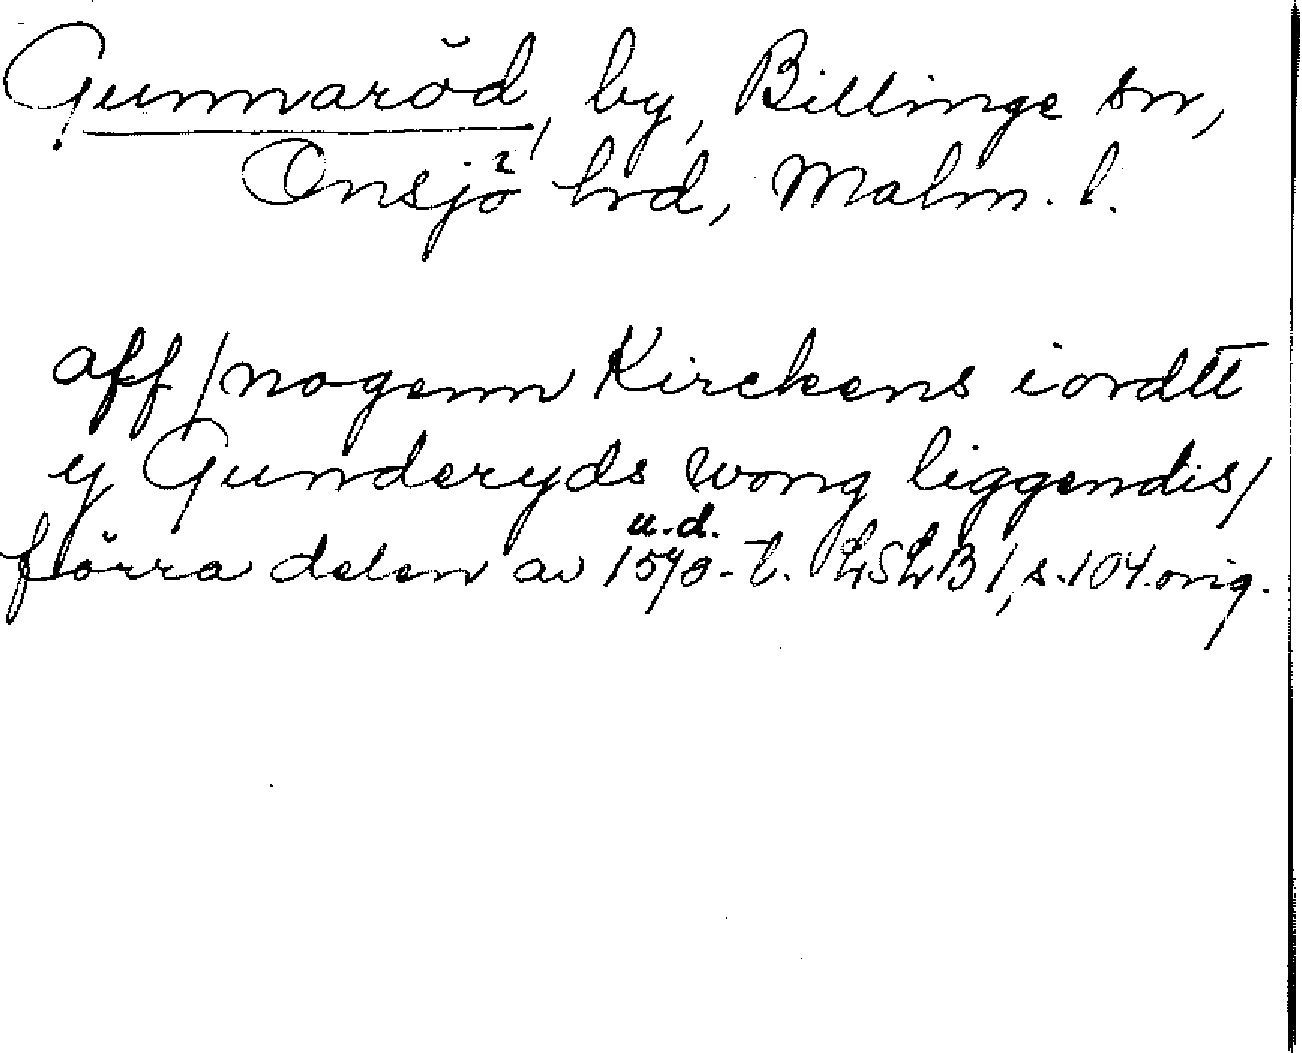 Gunnaröd, by, Billinge sn,
Onsjö hrd, Malm. l.
aff/nogenn Kirckens iordtt
y Gunderyds wong liggendis/
u.d.
förra delen av 1570-t. LSLB 1, s. 104. orig.